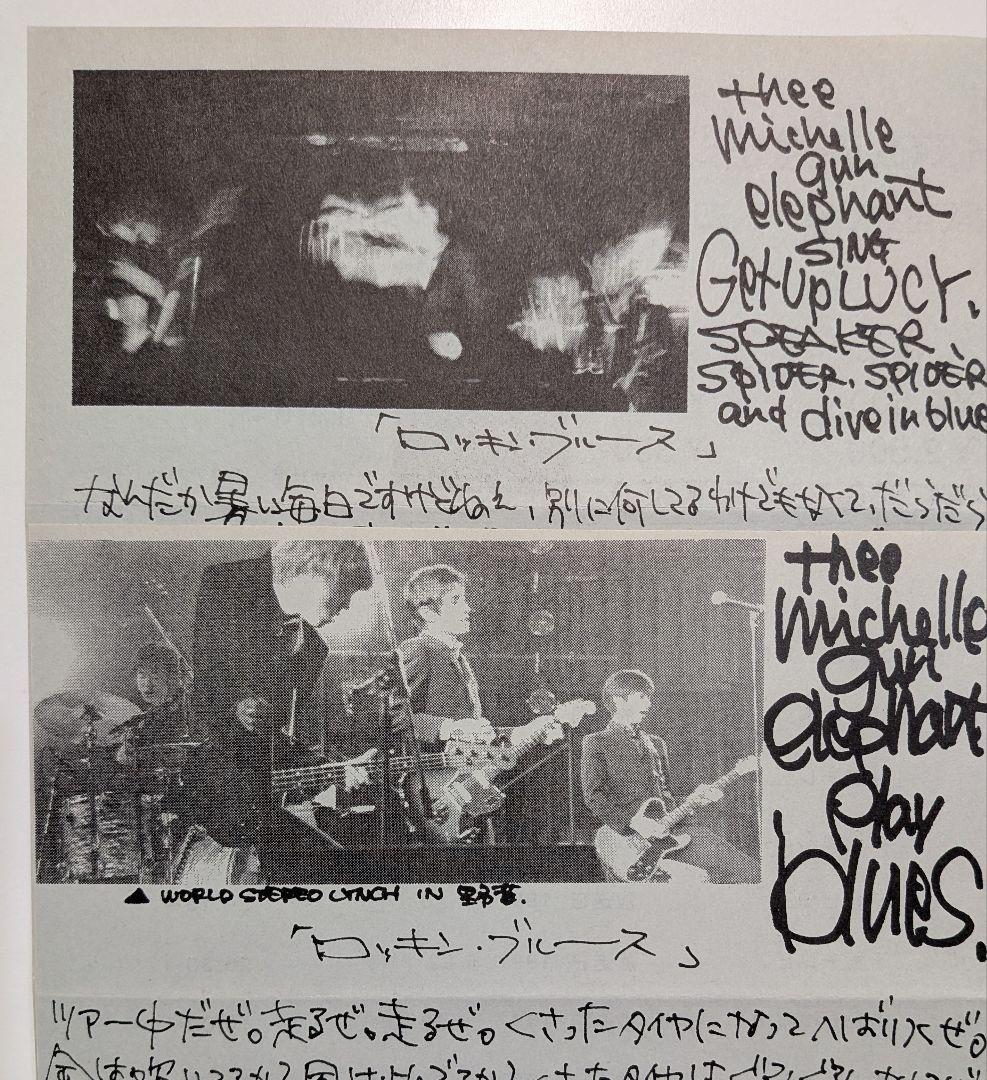 thee
michelle
gun
elephant
SING
Get Up LUCY.
SPEAKER,
SPIDER, SPIDER
and dive in blue
「ロッキン・ブルース」
なんだか暑い毎日ですけどねえ、別に何してるわけでもなくて、だらだら
thee
michelle
gun
elephant
play
blues.
▲ WORLD STEREO LYNCH IN 野音.
「ロッキン・ブルース」
ツアー中だぜ。走るぜ。走るぜ。くさったタイヤになってへばりつくぜ。